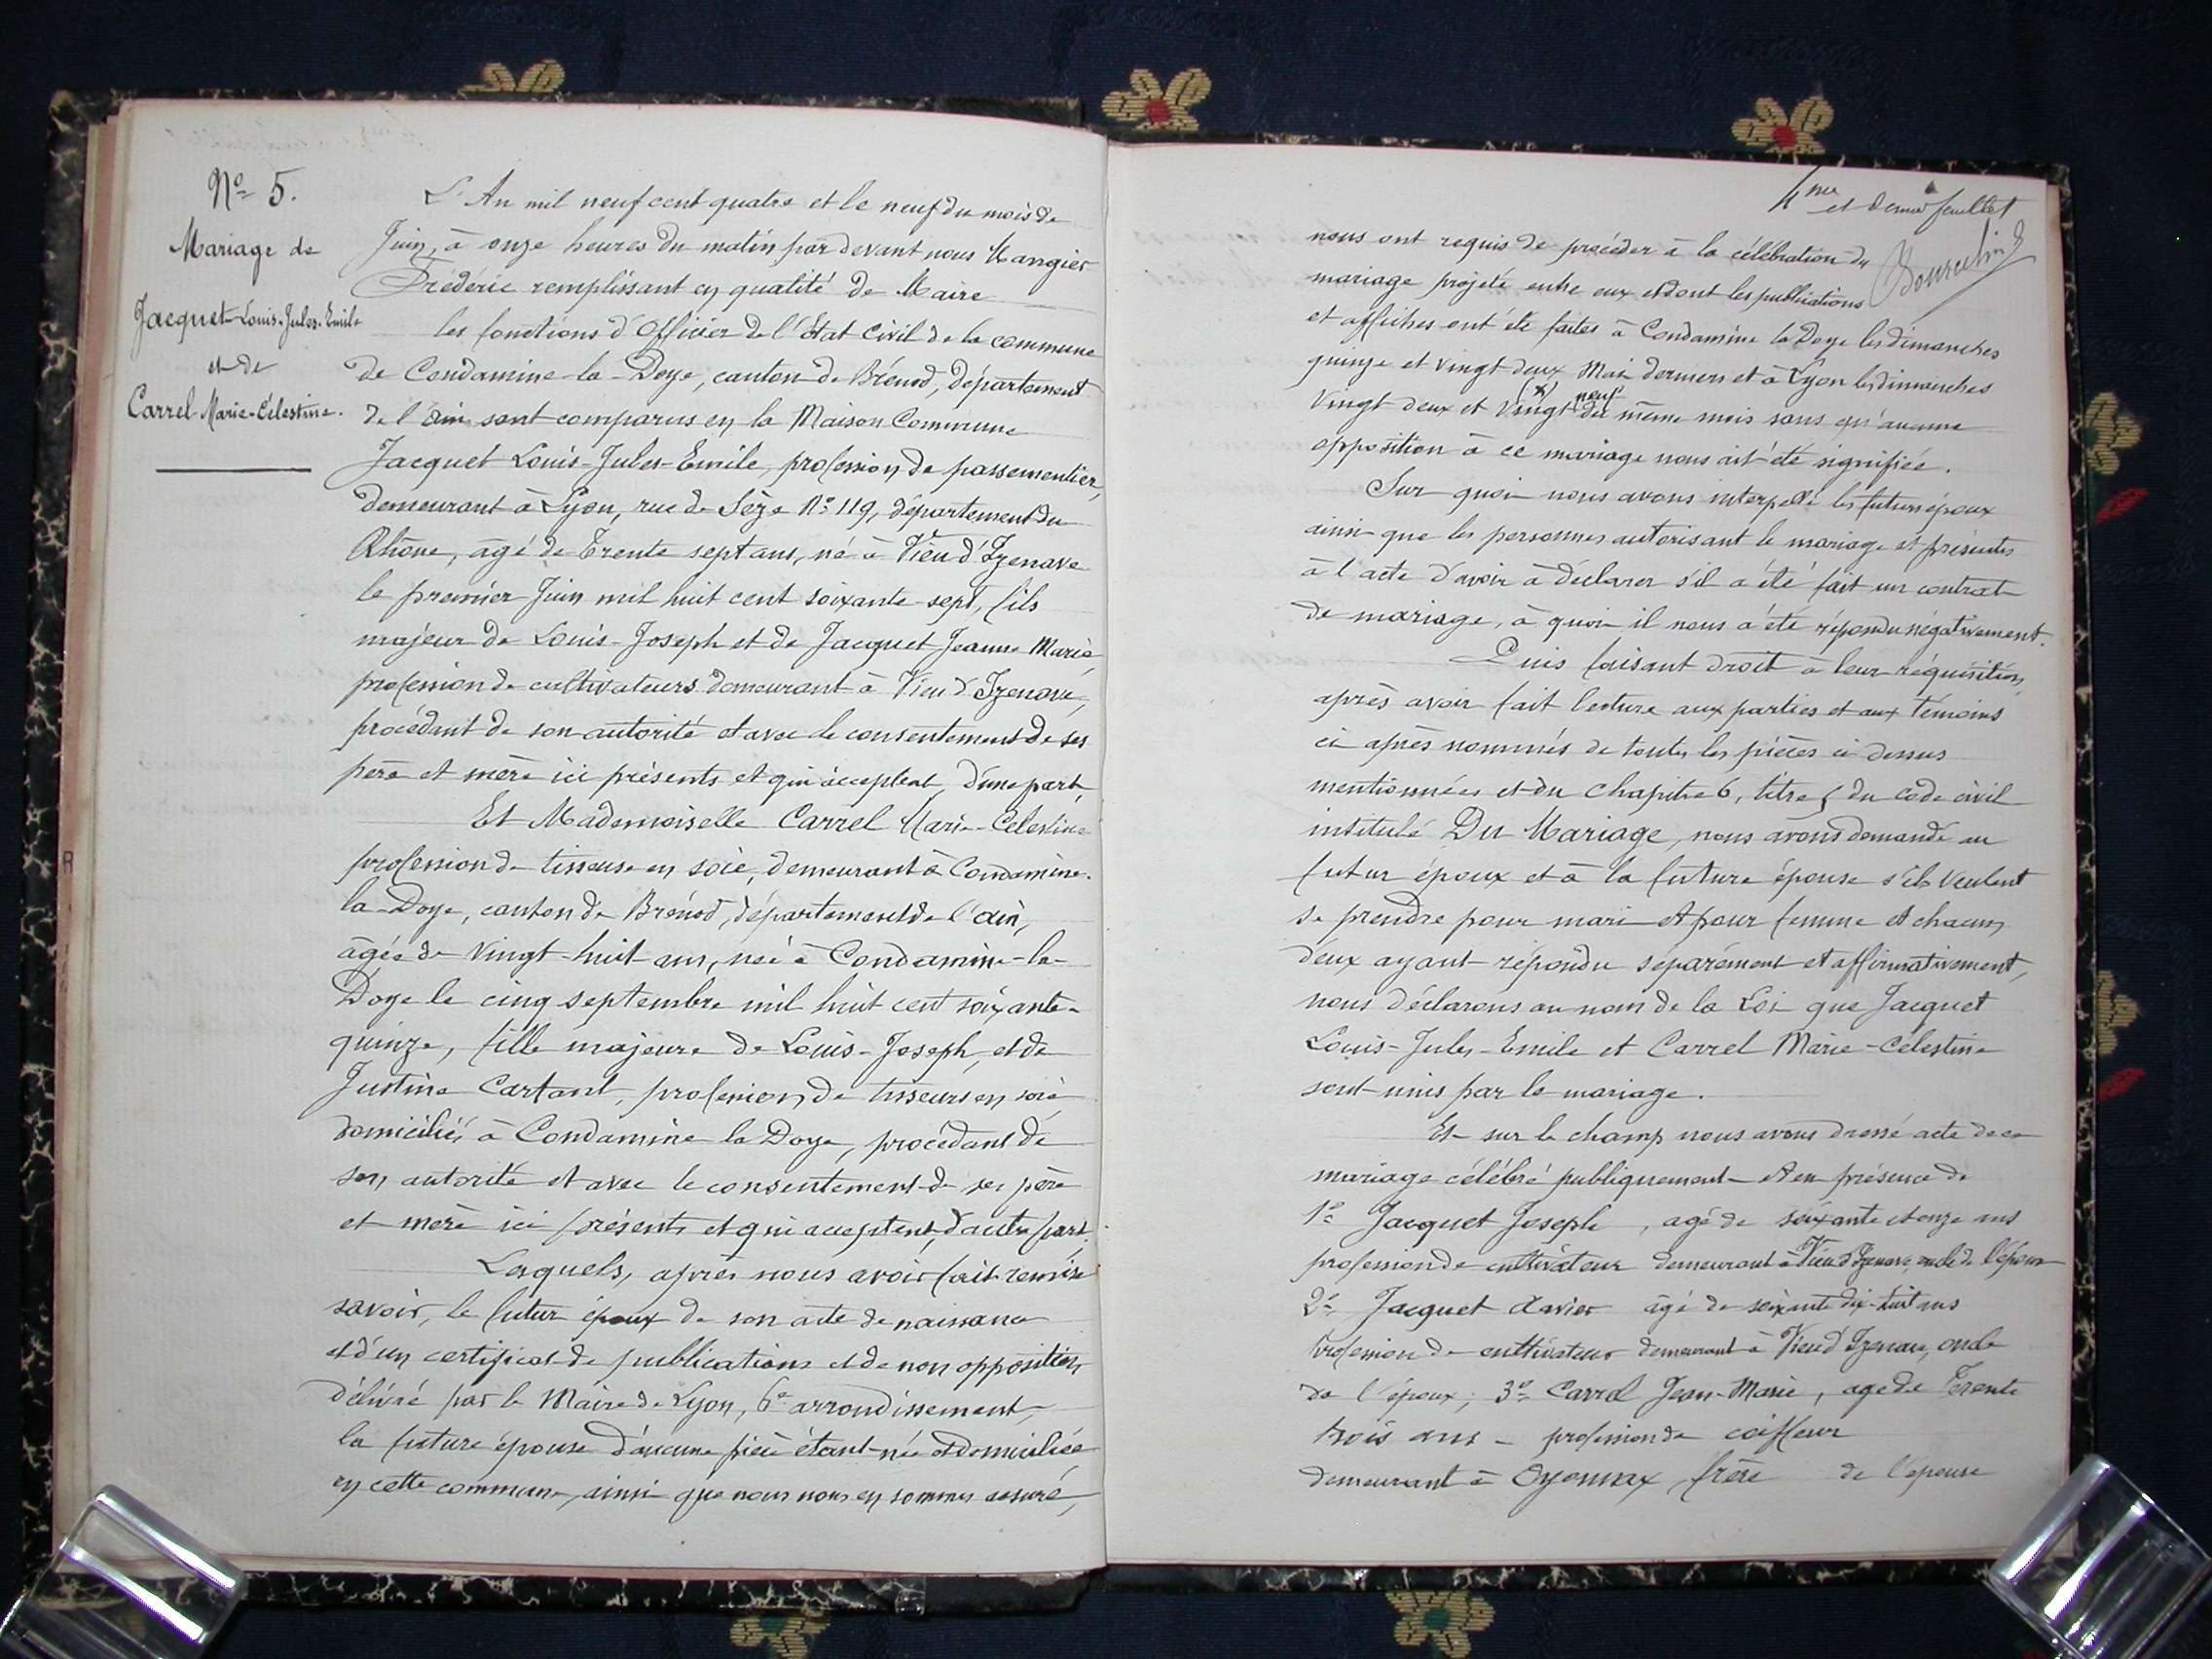 Nº 5.
Mariage de
Jacquet Louis-Jules-Emile
et de
Carrel Marie-Célestine.
L'An mil neuf cent quatre et le neuf du mois de
Juin, à onze heures du matin par devant nous Mangier
Frédéric remplissant en qualité de Maire
les fonctions d'Officier de l'Etat Civil de la commune
de Condamine-la-Doye, canton de Brénod, Département
de l'ain sont comparus en la Maison Commune
Jacquet Louis-Jules-Emile, profession de passementier,
demeurant à Lyon, rue de Sèze Nº 119, département du
Rhône, âgé de Trente sept ans, né à Vieu d'Izenave
le premier Juin mil huit cent soixante-sept, fils
majeur de Louis-Joseph et de Jacquet Jeanne Marie
profession de cultivateurs demeurant à Vieu d'Izenave,
procédant de son autorité et avec le consentement de ses
père et mère ici présents et qui acceptent, d'une part,
Et Mademoiselle Carrel Marie-Célestine
profession de tisseuse en soie, demeurant à Condamine-
la-Doye, canton de Brénod, département de l'ain,
âgée de vingt-huit ans, née à Condamine-la-
Doye le cinq septembre mil huit cent soixante-
quinze, fille majeure de Louis-Joseph, et de
Justine Cartant, profession de tisseurs en soie
domiciliés à Condamine la Doye, procédant de
son autorité et avec le consentement de ses père
et mère ici présents et qui acceptent, d'autre part.
Lesquels, après nous avoir fait remise
savoir, le futur époux de son acte de naissance
et d'un certificat de publications et de non opposition
délivré par le Maire de Lyon, 6e arrondissement,
la future épouse d'aucune pièce étant née et domiciliée
en cette commune, ainsi que nous nous en sommes assuré,
4me et dernier feuillet
nous ont requis de procéder à la célébration du
mariage projeté entre eux et dont les publications
et affiches ont été faites à Condamine la Doye les dimanches
quinze et vingt deux Mai derniers et à Lyon les dimanches
vingt deux et vingt (x) neuf du même mois sans qu'aucune
opposition à ce mariage nous ait été signifiée.
Sur quoi nous avons interpellé les futurs époux
ainsi que les personnes autorisant le mariage et présentes
à l'acte d'avoir à déclarer s'il a été fait un contrat
de mariage, à quoi il nous a été répondu négativement.
Puis faisant droit à leur réquisition,
après avoir fait lecture aux parties et aux témoins
ci après nommés de toutes les pièces ci dessus
mentionnées et du chapitre 6, titre 5 du code civil
intitulé Du Mariage, nous avons demandé au
futur époux et à la future épouse s'ils veulent
se prendre pour mari et pour femme et chacun
d'eux ayant répondu séparément et affirmativement,
nous déclarons au nom de la Loi que Jacquet
Louis-Jules-Emile et Carrel Marie-Célestine
sont unis par le mariage.
Et sur le champ nous avons dressé acte de ce
mariage célébré publiquement et en présence de
1º Jacquet Joseph, âgé de soixante et onze ans
profession de cultivateur demeurant à Vieu d'Izenave, oncle de l'époux
2º Jacquet Xavier âgé de soixante dix-huit ans
profession de cultivateur demeurant à Vieu d'Izenave, oncle
de l'époux; 3º Carrel Jean-Marie, âgé de Trente
trois ans - profession de coiffeur
demeurant à Oyonnax frère de l'épouse